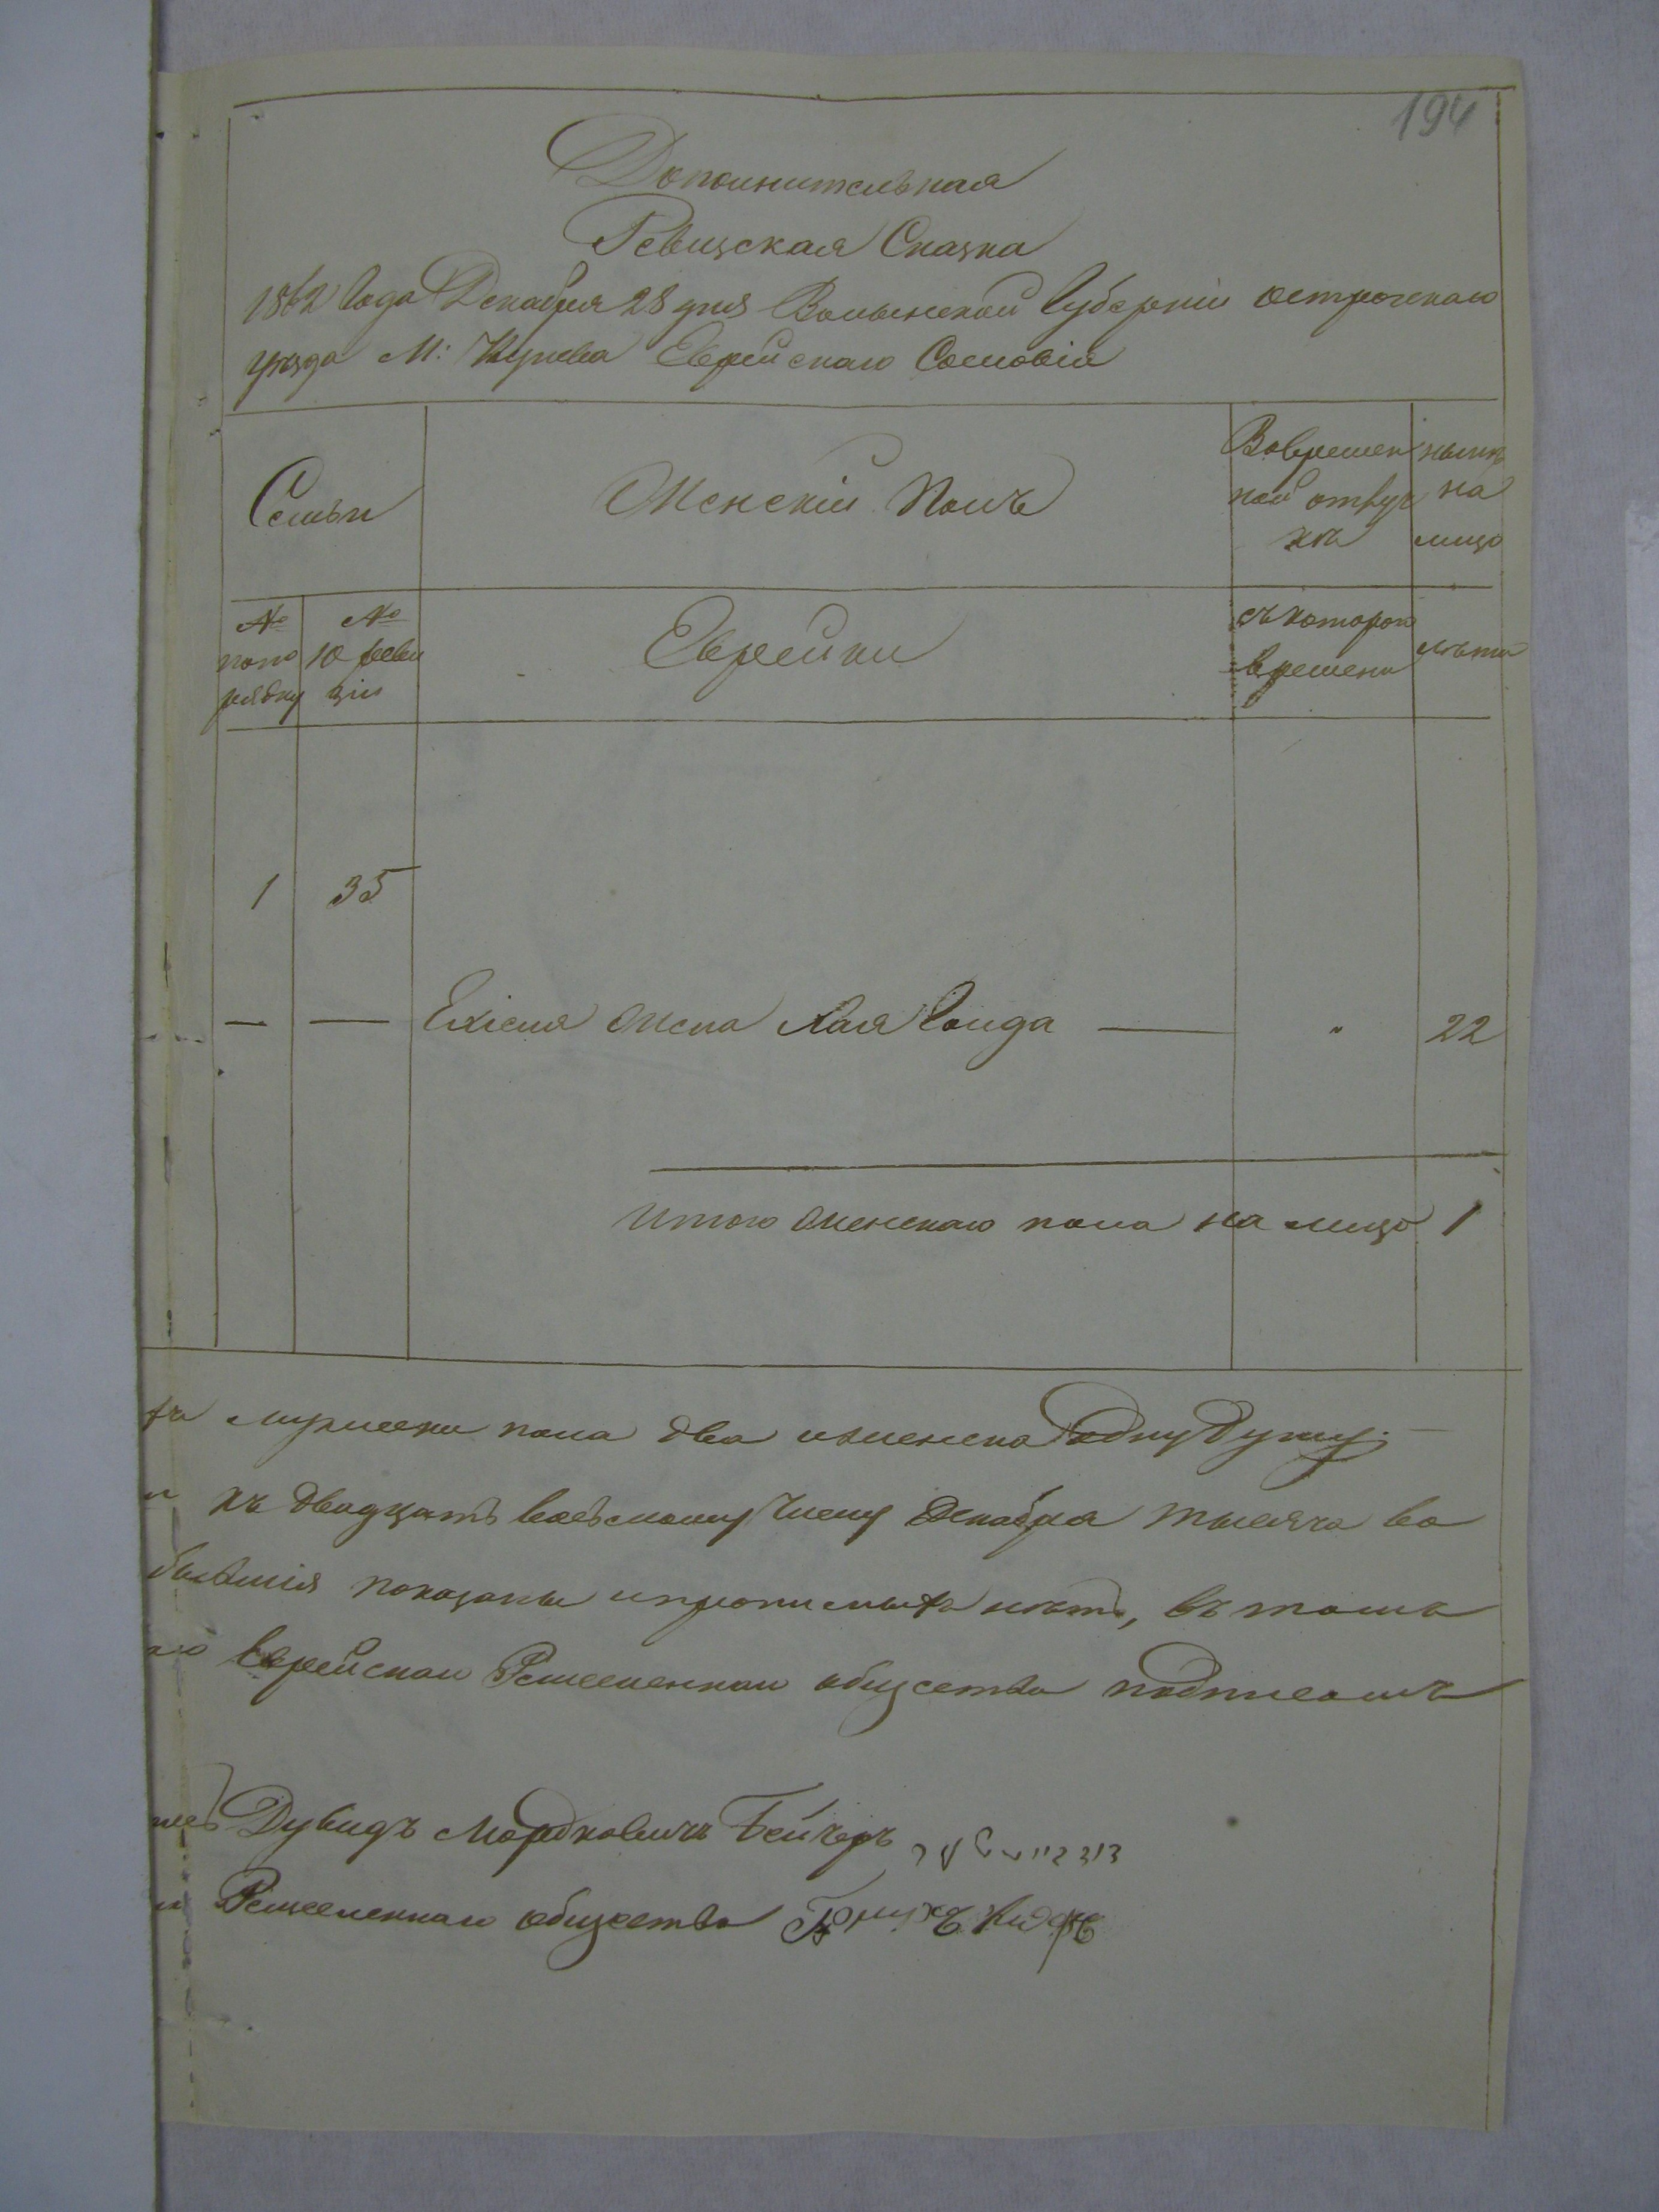 194
Дополнительная
Ревизская Сказка
1862 Года Декабря 28 дня Волынской Губерніи острожскаго
уѣзда М: Кунева Еврейскаго Сословія
Семьи
Женскій Полъ
Вовремен
ной отлуч
кѣ
нынѣ
на
лицо
№
попо
рядку
№
10 реви
зіи
Еврейки
съкотораго
времени
лѣта
1 35
— — Ехіеля жена Хая Голда — " 22
Итого женскаго пола на лицо 1
мужеска пола два и женска одну Душу. —
къ двадцать восьмому числу Декабря тысяча во
бывшія показаны и прописныхъ нѣтъ, въ томъ
Еврейскаго Ремесленнаго общества подписомъ
Дувидъ Мордковичъ Бейчеръ
Ремесленнаго общества